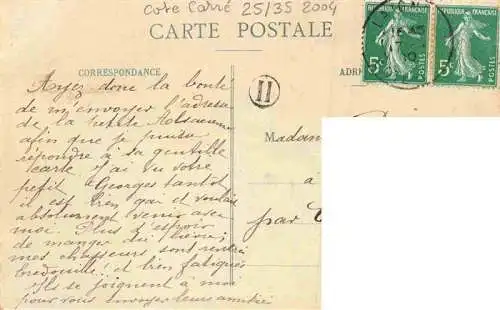 Cote Carré 25/35 2004
CARTE POSTALE
CORRESPONDANCE
ADR
REPUBLIQUE FRANÇAISE
5c
POSTES
REPUBLIQUE FRANÇAISE
5c
POSTES
H
Ayez donc la bonté
de m'envoyer l'adresse
de la petite Alsacienne
afin que je puisse
répondre à sa gentille
carte. J'ai vu votre
petit Georges tantôt
il est bien gai et voulait
absolument venir avec
moi. Plus d'espoir
de manger du lièvre;
mes chasseurs sont rentrés
bredouille! et bien fatigués
Ils se joignent à moi
pour vous envoyer leurs amitiés
Madam
a
par